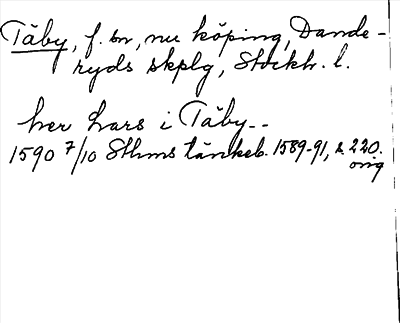 Täby, f. sn, nu köping, Dande-
ryds skplg, Stockh. l.
her Lars i Täby--
1590 7/10 Sthms tänkeb. 1589-91, s. 220.
orig